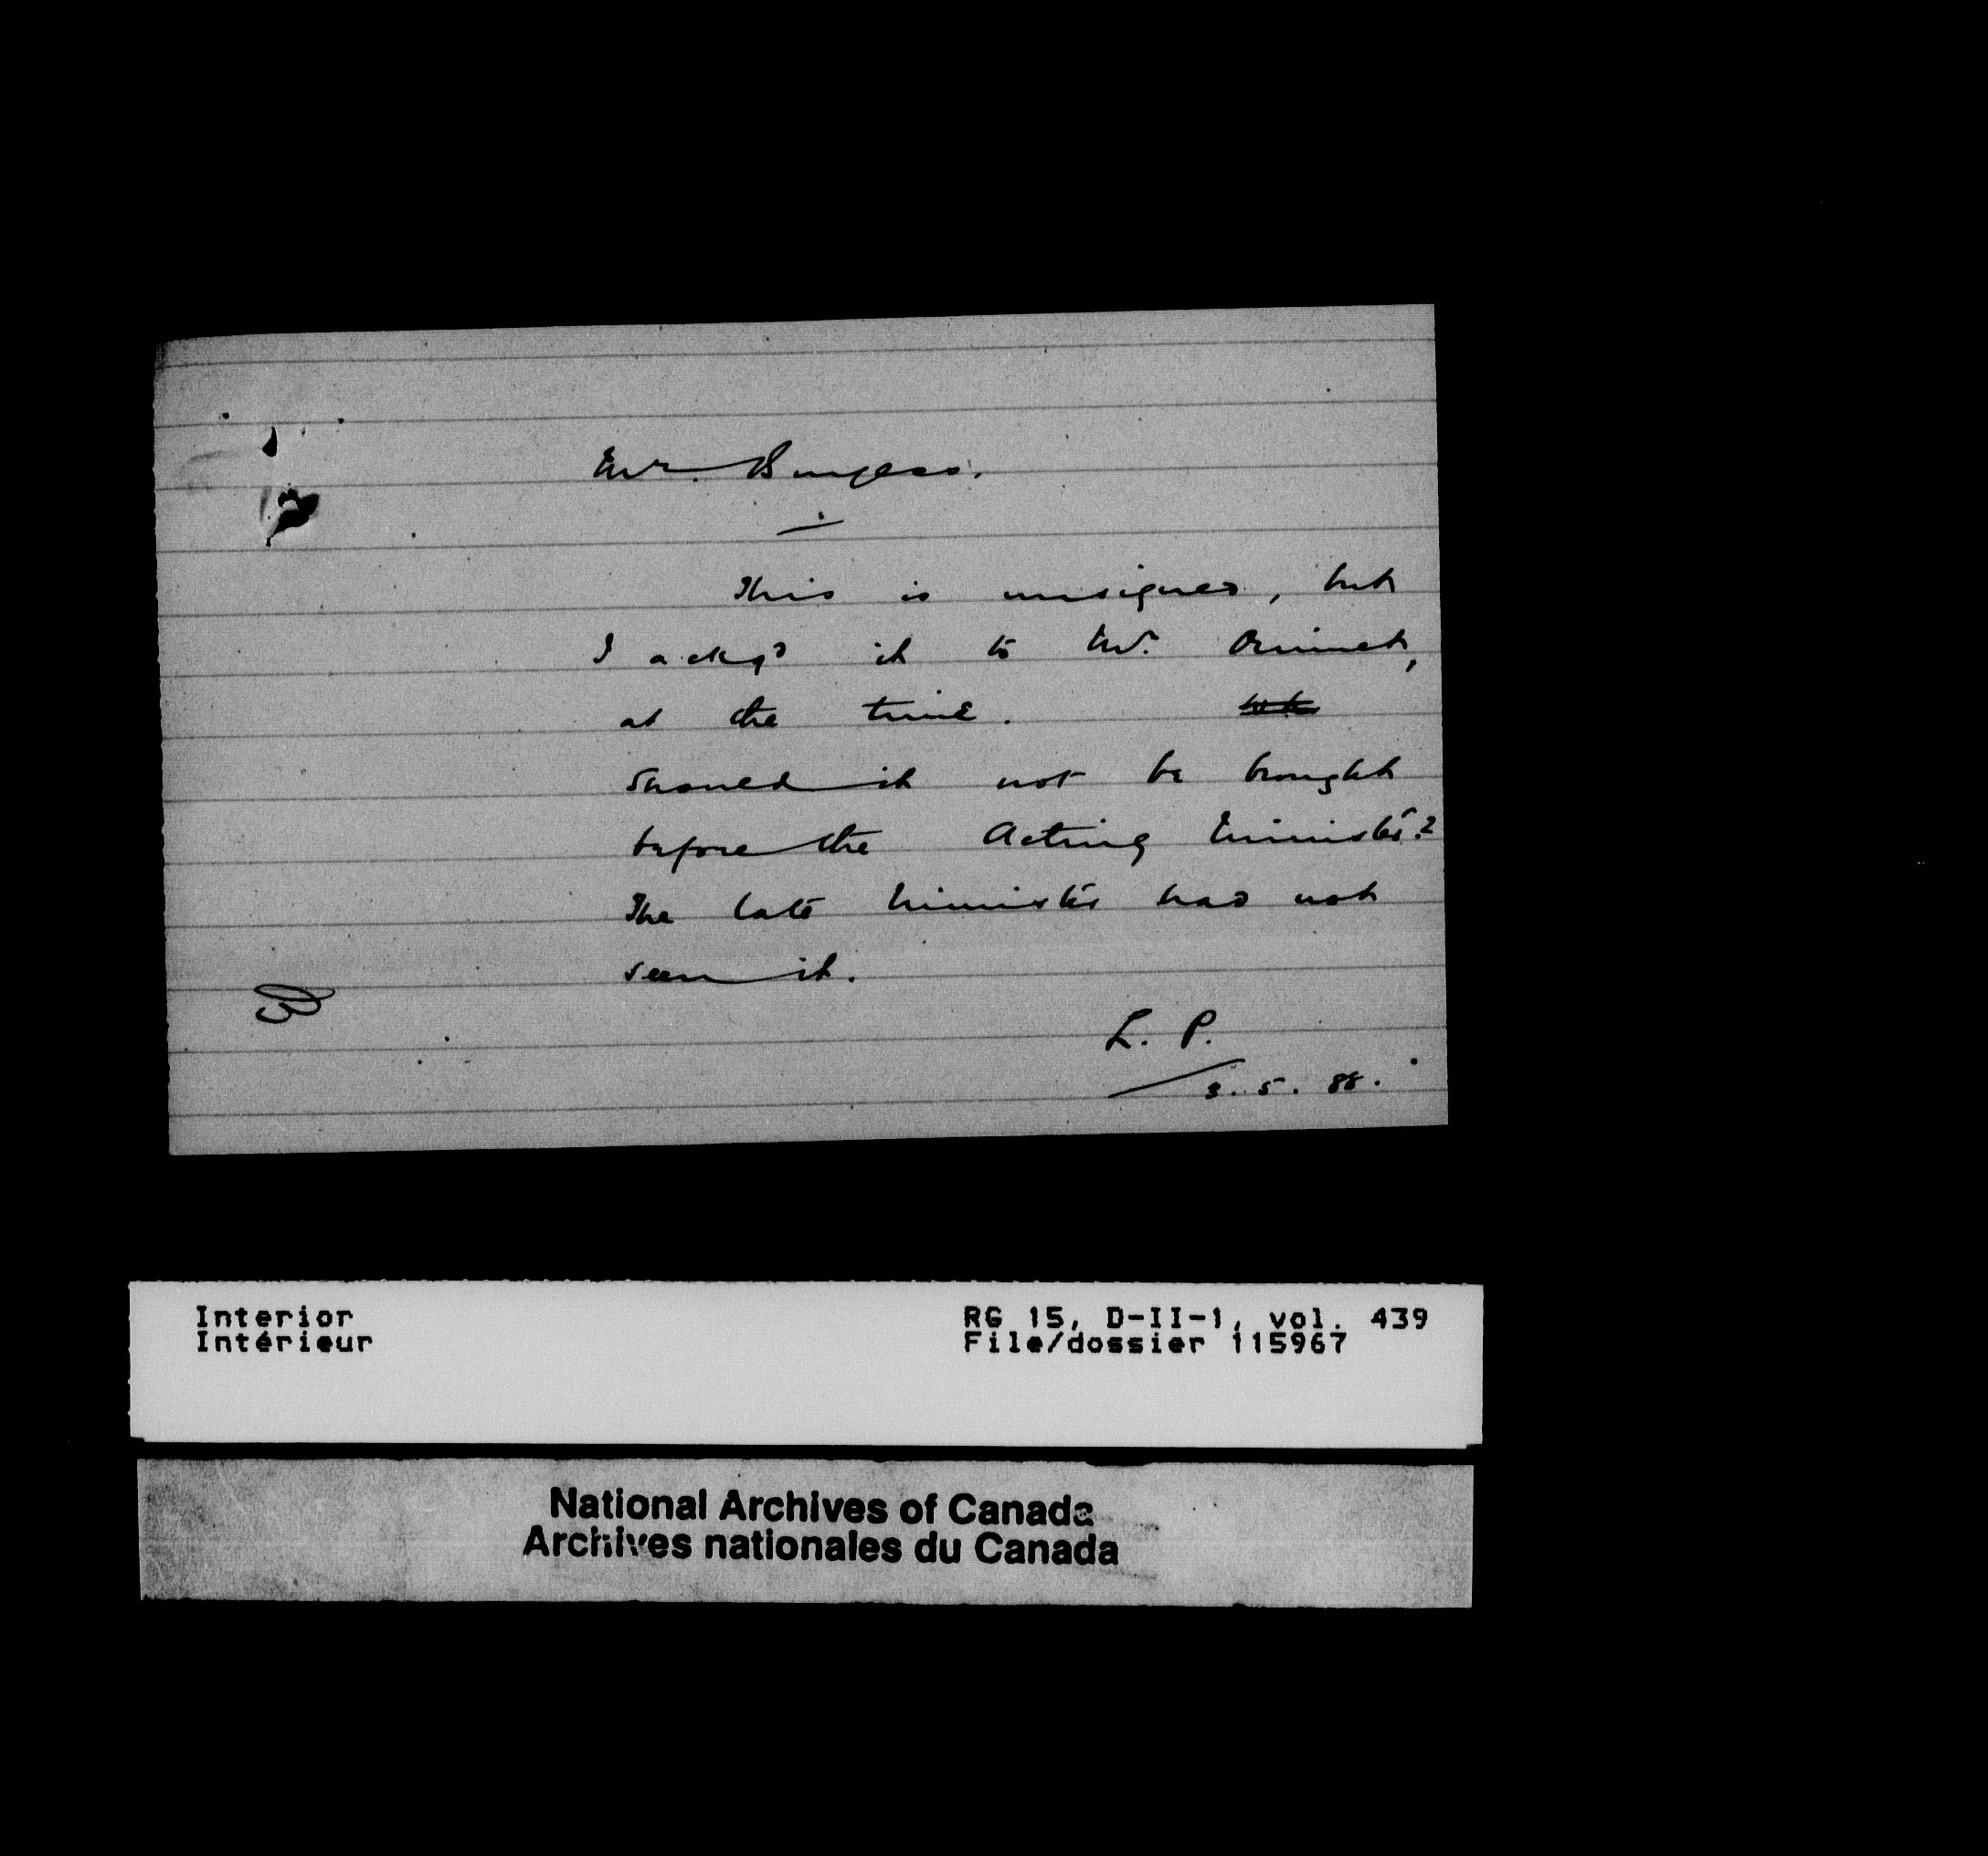 Mr. Burgess.
This is unsigned, but
I ackgd it to Mr. Ouimet,
at the time.
Should it not be brought
before the Acting Minister?
The late Minister had not
seen it.
L. P.
3. 5. 88.
Interior
Intérieur
RG 15, D-II-1, vol. 439
File/dossier 115967
National Archives of Canada
Archives nationales du Canada